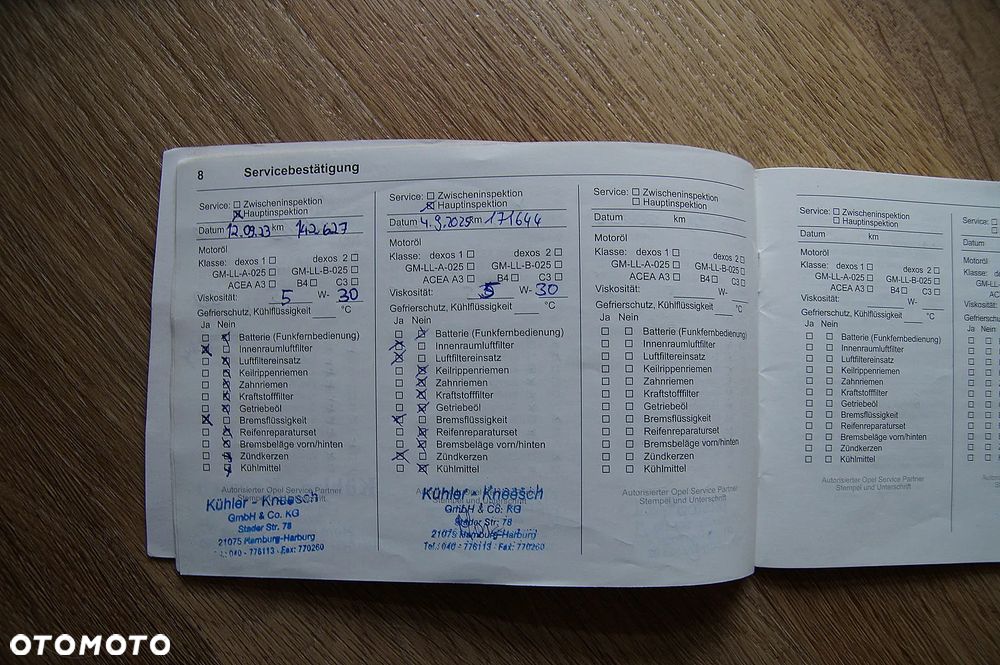 8 Servicebestätigung
Service: Zwischeninspektion
Hauptinspektion
Datum 12.09.23 km 142.627
Motoröl
Klasse: dexos 1 dexos 2
GM-LL-A-025 GM-LL-B-025
ACEA A3 B4 C3
Viskosität: 5 W- 30
Gefrierschutz, Kühlflüssigkeit °C
Ja Nein
Batterie (Funkfernbedienung)
Innenraumluftfilter
Luftfiltereinsatz
Keilrippenriemen
Zahnriemen
Kraftstofffilter
Getriebeöl
Bremsflüssigkeit
Reifenreparaturset
Bremsbeläge vorn/hinten
Zündkerzen
Kühlmittel
Autorisierter Opel Service Partner
Kühler - Kneesch
GmbH & Co. KG
Stader Str. 78
21075 Hamburg-Harburg
Tel.: 040 - 776113 · Fax: 770260
Service: Zwischeninspektion
Hauptinspektion
Datum 4.9.2025 km 171644
Motoröl
Klasse: dexos 1 dexos 2
GM-LL-A-025 GM-LL-B-025
ACEA A3 B4 C3
Viskosität: 5 W- 30
Gefrierschutz, Kühlflüssigkeit °C
Ja Nein
Batterie (Funkfernbedienung)
Innenraumluftfilter
Luftfiltereinsatz
Keilrippenriemen
Zahnriemen
Kraftstofffilter
Getriebeöl
Bremsflüssigkeit
Reifenreparaturset
Bremsbeläge vorn/hinten
Zündkerzen
Kühlmittel
Kühler - Kneesch
Stempel und Unterschrift
GmbH & Co. KG
Stader Str. 78
21075 Hamburg-Harburg
Tel.: 040 - 776113 · Fax: 770260
Service: Zwischeninspektion
Hauptinspektion
Datum km
Motoröl
Klasse: dexos 1 dexos 2
GM-LL-A-025 GM-LL-B-025
ACEA A3 B4 C3
Viskosität: W-
Gefrierschutz, Kühlflüssigkeit °C
Ja Nein
Batterie (Funkfernbedienung)
Innenraumluftfilter
Luftfiltereinsatz
Keilrippenriemen
Zahnriemen
Kraftstofffilter
Getriebeöl
Bremsflüssigkeit
Reifenreparaturset
Bremsbeläge vorn/hinten
Zündkerzen
Kühlmittel
Autorisierter Opel Service Partner
Stempel und Unterschrift
Service: Zwischeninspektion
Hauptinspektion
Datum km
Motoröl
Klasse: dexos 1 dexos 2
GM-LL-A-025 GM-LL-B-025
ACEA A3 B4 C3
Viskosität: W-
Gefrierschutz, Kühlflüssigkeit °C
Ja Nein
Batterie (Funkfernbedienung)
Innenraumluftfilter
Luftfiltereinsatz
Keilrippenriemen
Zahnriemen
Kraftstofffilter
Getriebeöl
Bremsflüssigkeit
Reifenreparaturset
Bremsbeläge vorn/hinten
Zündkerzen
Kühlmittel
Autorisierter Opel Service Partner
Stempel und Unterschrift
Service:
Datum
Motoröl
Klasse:
GM-LL-A
ACE
Viskosität:
Gefrierschutz
Ja Nein
OTOMOTO